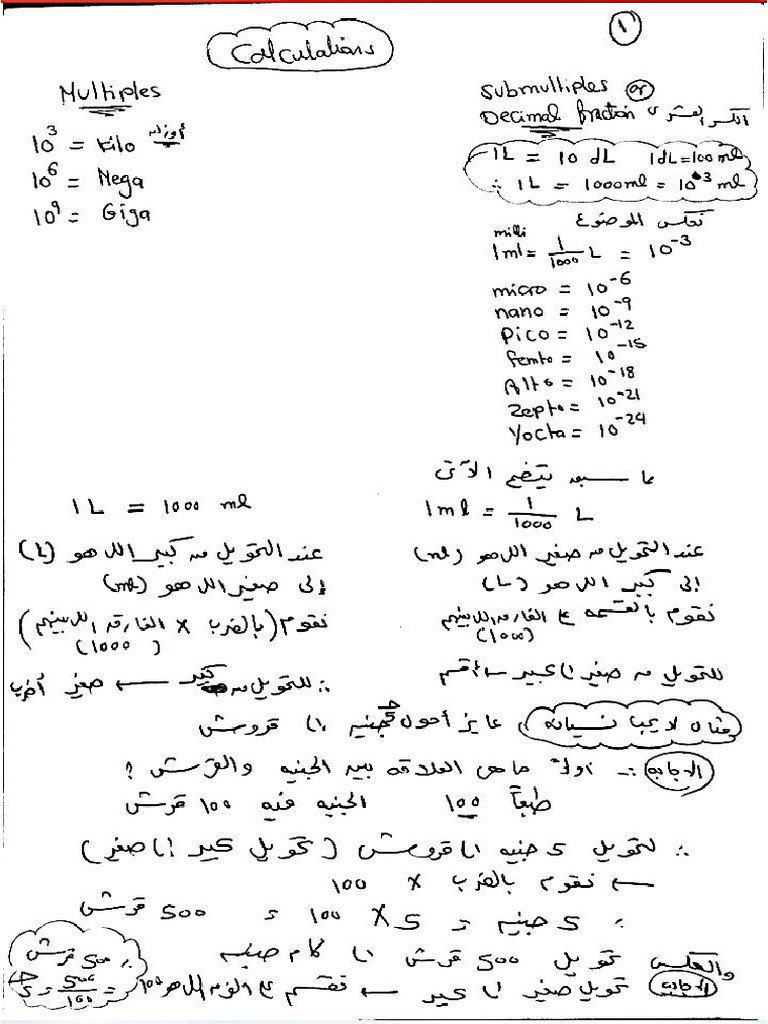 1
Calculations
Multiples
10³ = Kilo أوزان
10⁶ = Mega
10⁹ = Giga
Submultiples or
Decimal fraction الكسر العشرى
1L = 10 dL 1dL = 100 ml
∴ 1L = 1000 ml = 10³ ml
نعكس الموضوع
milli
1ml = 1/1000 L = 10⁻³
micro = 10⁻⁶
nano = 10⁻⁹
Pico = 10⁻¹²
femto = 10⁻¹⁵
Alto = 10⁻¹⁸
Zepto = 10⁻²¹
Yocta = 10⁻²⁴
مما سبق يتضح الآتى
1ml = 1/1000 L
عند التحويل من صغير اللى هو (ml)
إلى كبير اللى هو (L)
نقوم بالقسمة ع الفارق اللى بينهم
(1000)
للتحويل من صغير لـ كبير ← أقسم
1L = 1000 ml
عند التحويل من كبير اللى هو (L)
إلى صغير اللى هو (ml)
نقوم (بالضرب × الفارق اللى بينهم)
(1000)
∴ للتحويل من كبير ← صغير أضرب
مثال لا يجب نسيانه عايز أحول 5 جنيه لـ قروش
الإجابة ∴ أولاً ما هى العلاقة بين الجنيه والقرش ؟
طبعاً 100 الجنيه فيه 100 قرش
∴ لتحويل 5 جنيه لـ قروش (تحويل كبير لـ صغير)
← نقوم بالضرب × 100
∴ 5 جنيه = 5 × 100 = 500 قرش
والعكس تحويل 500 قرش لـ كام جنيه
الإجابة تحويل صغير لـ كبير ← فنقسم ع الفرق اللى هو 100
∴ 500 قرش
= 500/100 = 5 ج